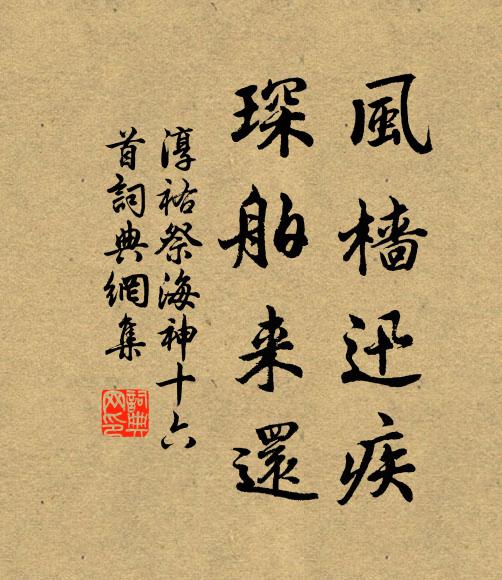 風檣迅疾
琛舶来還
淳祐祭海神十六
首詞典網集
詞典
网印